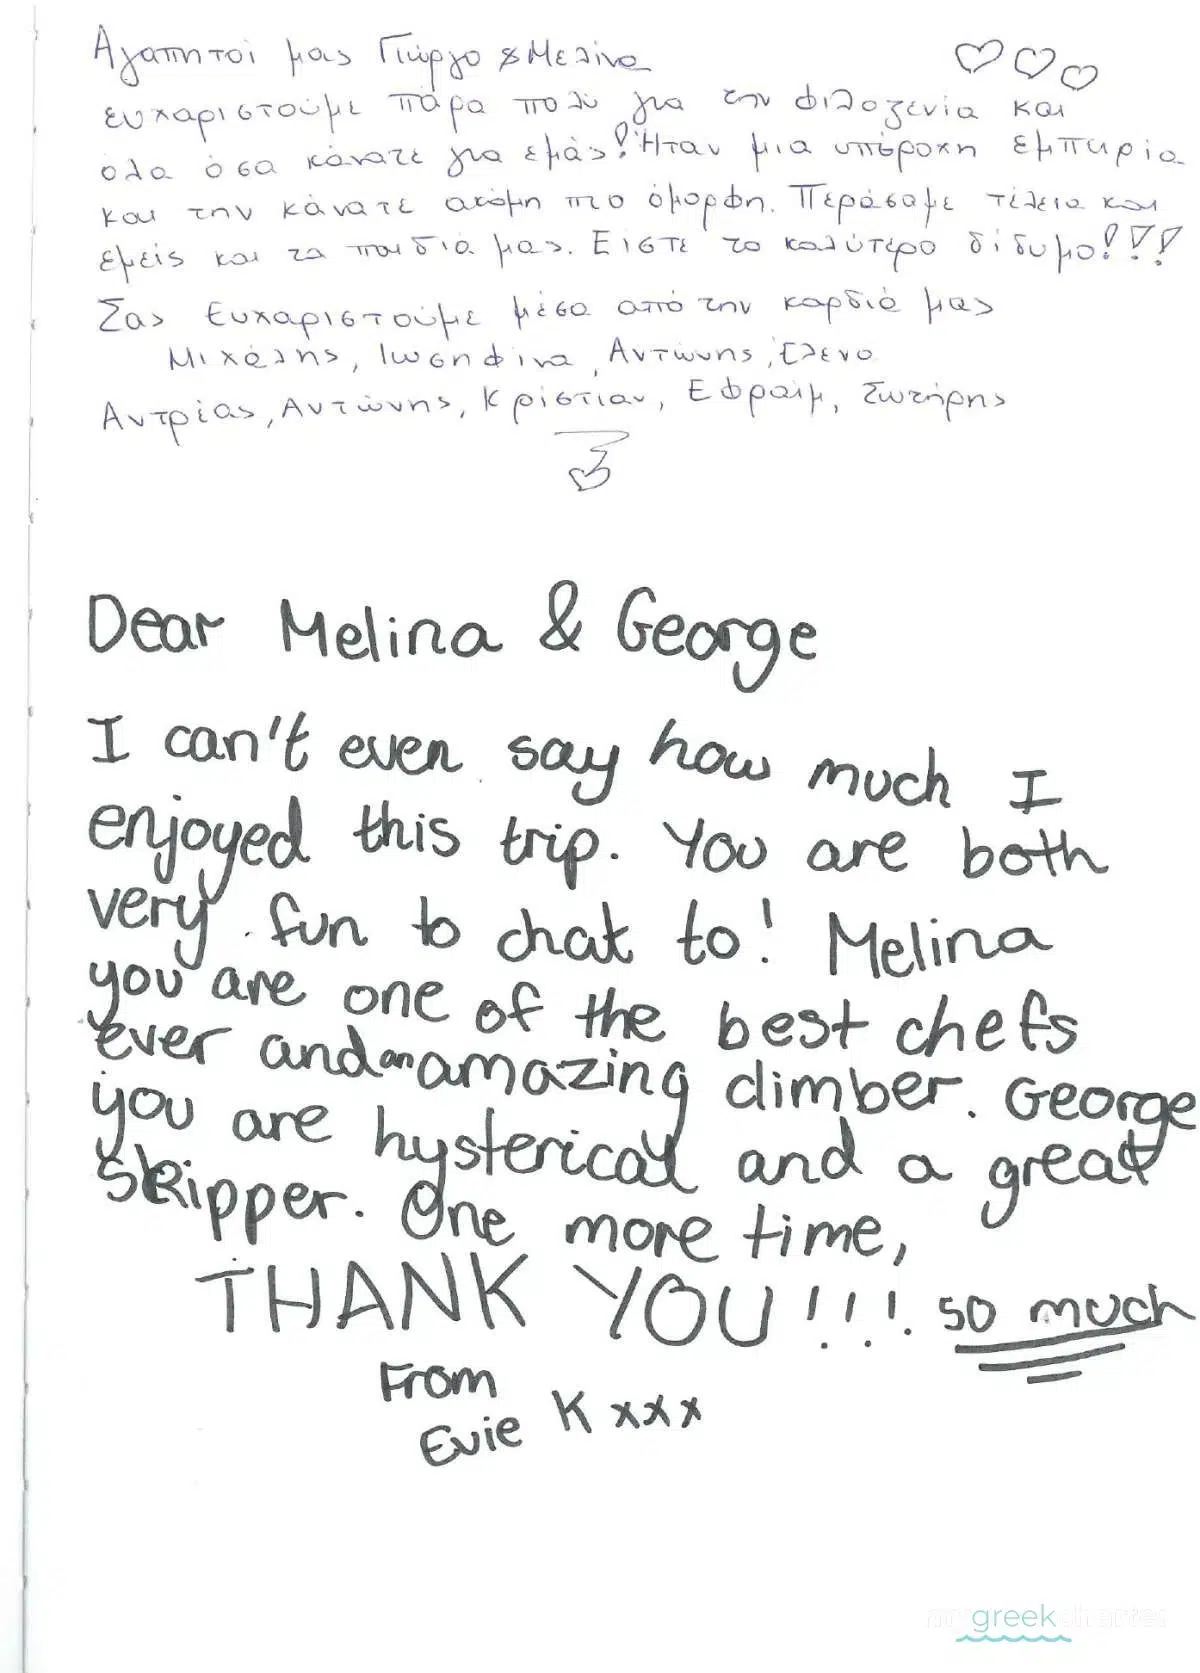 Αγαπητοί μας Γιώργο & Μελίνα
ευχαριστούμε πάρα πολύ για την φιλοξενία και
όλα όσα κάνατε για εμάς! Ήταν μια υπέροχη εμπειρία
και την κάνατε ακόμη πιο όμορφη. Περάσαμε τέλεια και
εμείς και τα παιδιά μας. Είστε το καλύτερο δίδυμο!!!
Σας Ευχαριστούμε μέσα από την καρδιά μας
Μιχάλης, Ιωσηφίνα, Αντώνης, Έλενα
Αντρέας, Αντώνης, Κρίστιαν, Εφραίμ, Σωτήρης
Dear Melina & George
I can't even say how much I
enjoyed this trip. You are both
very fun to chat to! Melina
you are one of the best chefs
ever and an amazing climber. George
you are hysterical and a great
skipper. One more time,
THANK YOU!!! so much
From
Evie K xxx
my greek charter